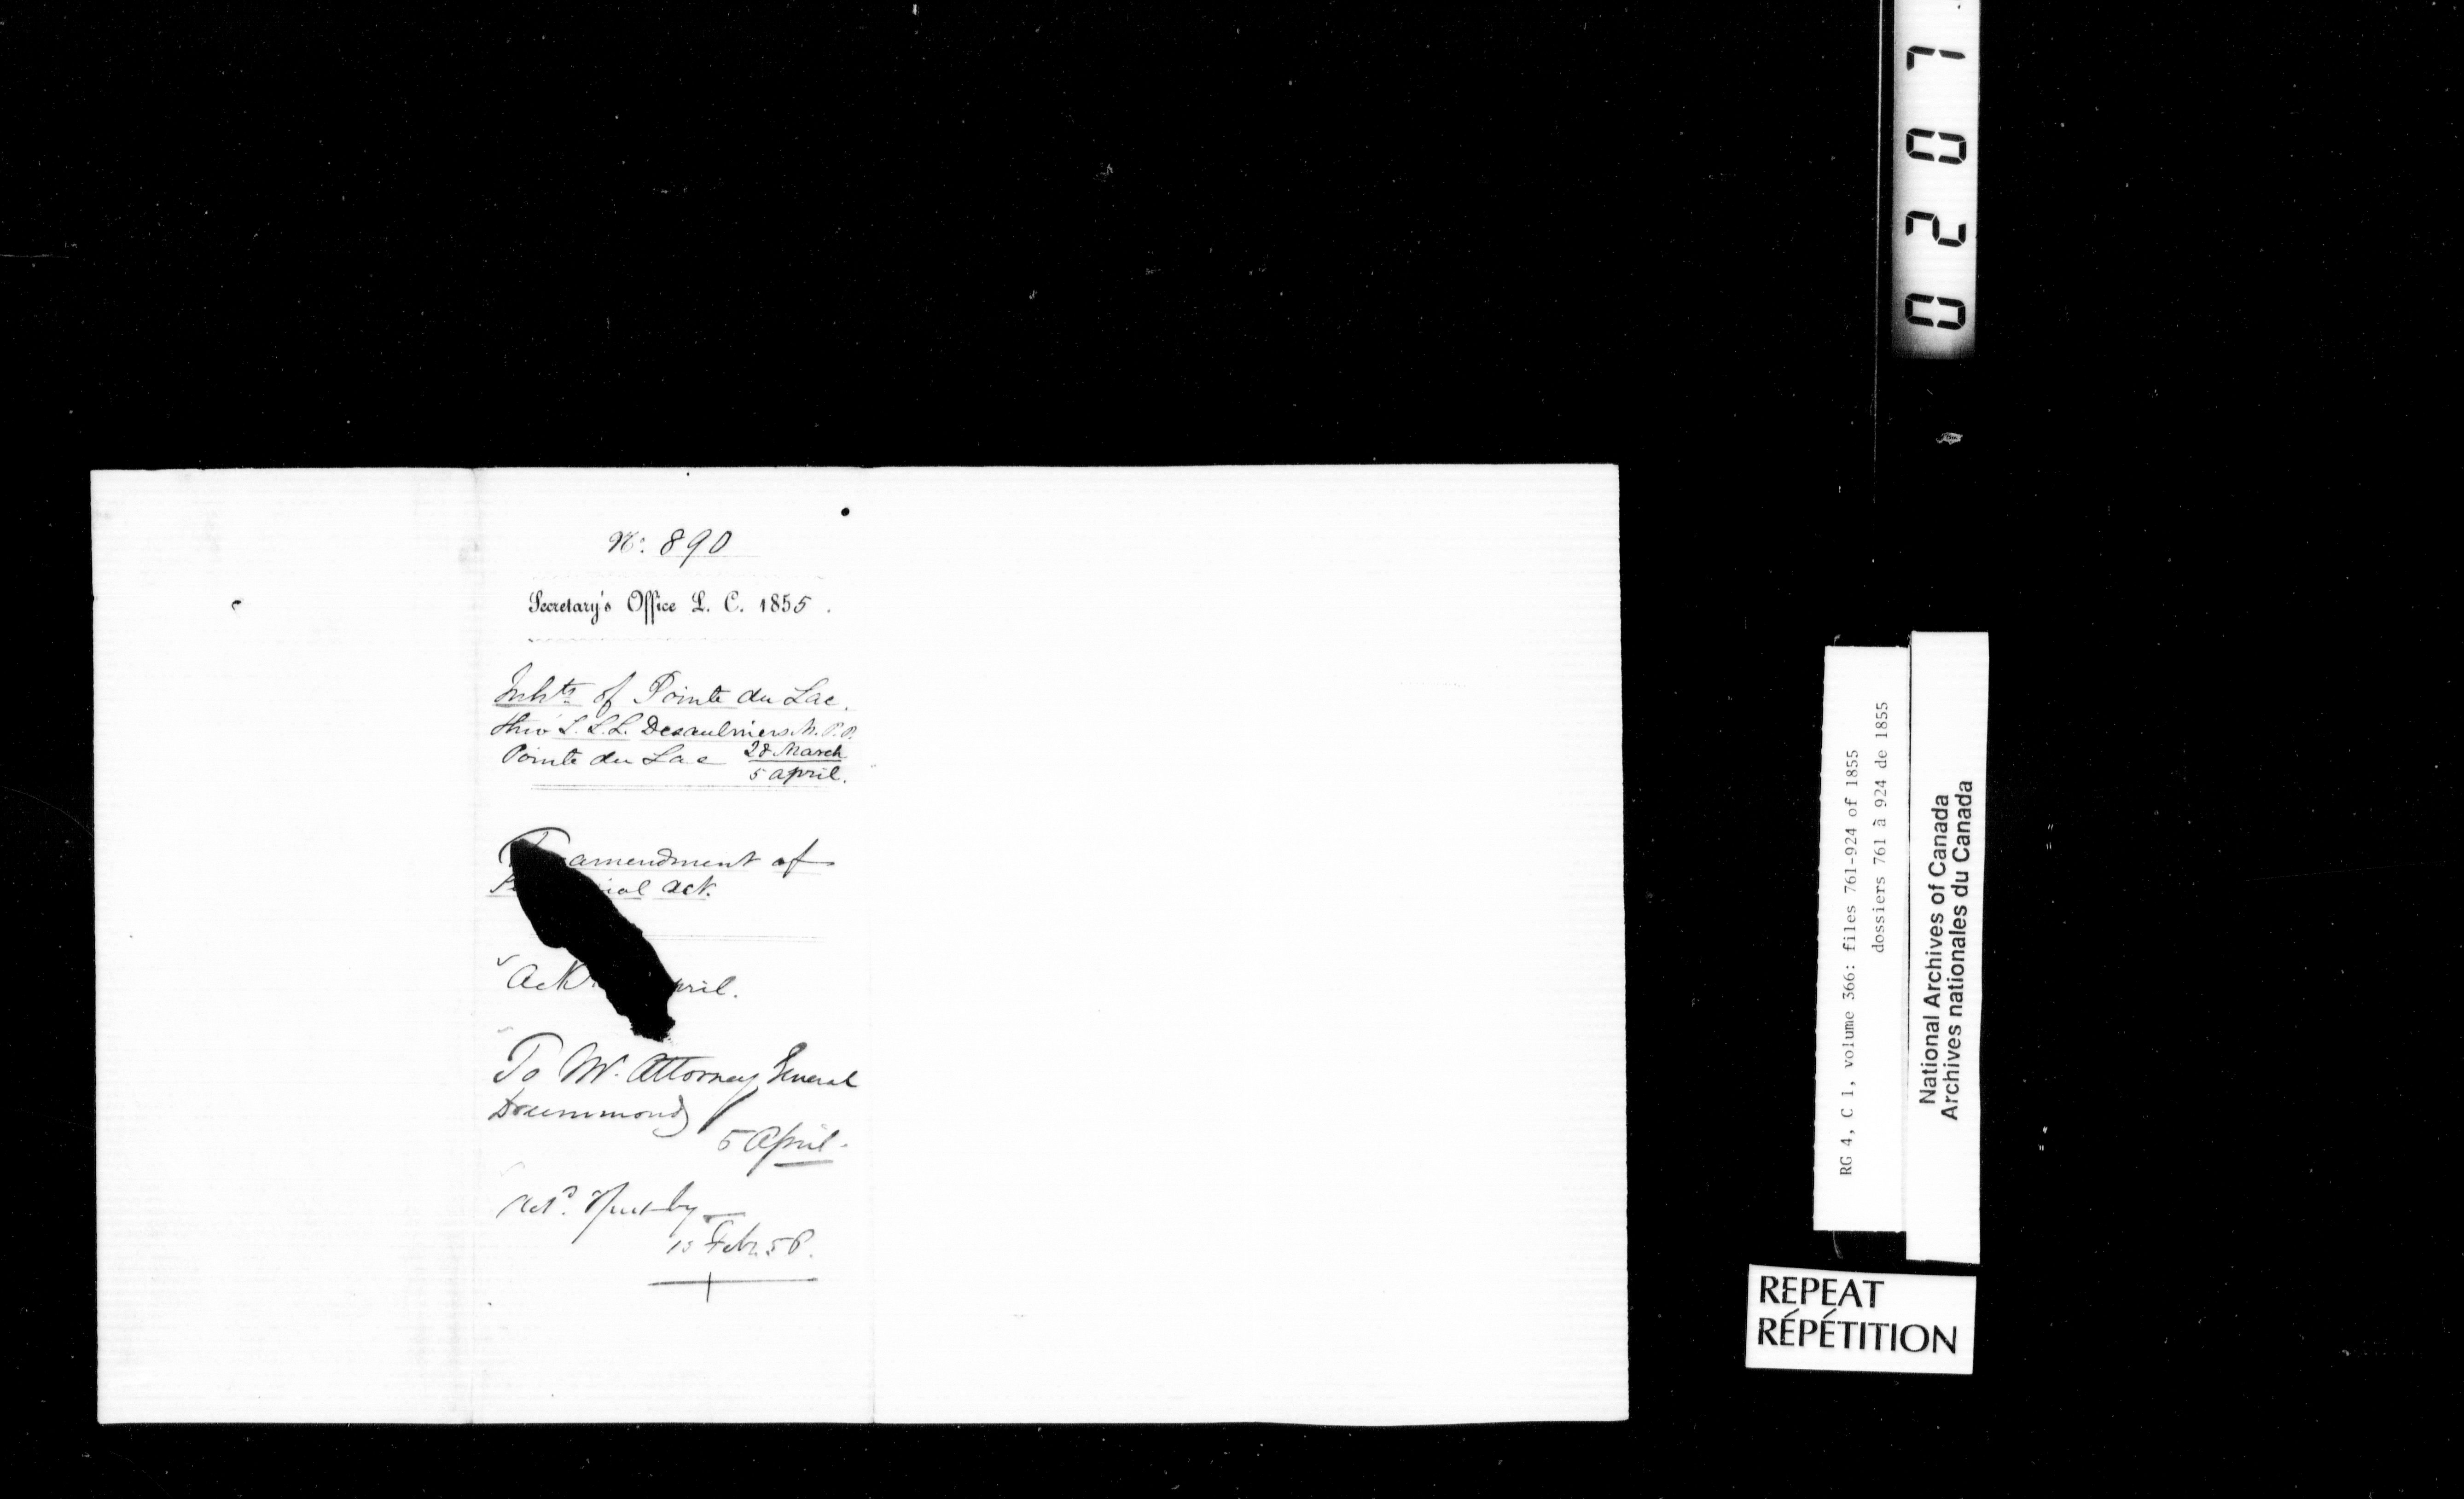 No. 890
Secretary's Office L. C. 1855.
Inhts of Pointe du Lac.
thro' L. L. L. Desaulniers M.P.P.
Pointe du Lac 28 March
5 april.
amendment of
ial act.
Ack pril.
To Mr. Attorney General
Drummond
5 April
by
15 Feb. 56.
0207
RG 4, C 1, volume 366: files 761-924 of 1855
dossiers 761 à 924 de 1855
National Archives of Canada
Archives nationales du Canada
REPEAT
RÉPÉTITION